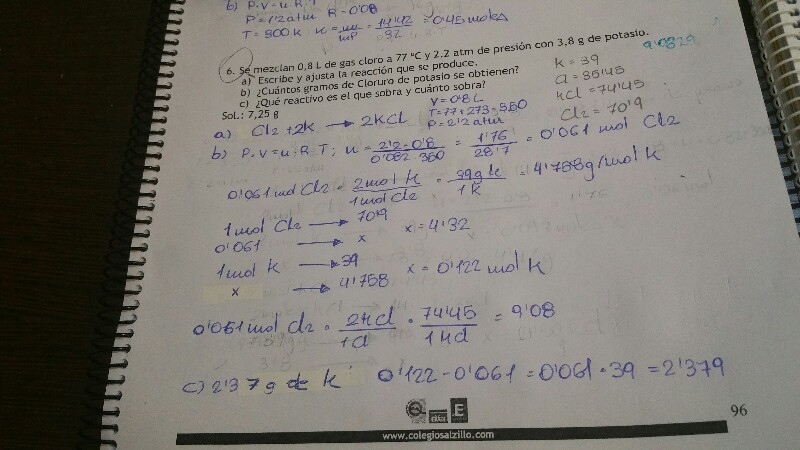 b) P.V=n.R.T
P=1'2 atm R=0'08
T=300K n=m/mP=14'42/32=0'45 moles
6. Se mezclan 0,8 L de gas cloro a 77 ºC y 2.2 atm de presión con 3,8 g de potasio.
a) Escribe y ajusta la reacción que se produce.
b) ¿Cuántos gramos de Cloruro de potasio se obtienen?
c) ¿Qué reactivo es el que sobra y cuánto sobra?
Sol.: 7,25 g
9'0829
K = 39
Cl = 35'45
KCl = 74'45
Cl2 = 70'9
V=0'8L
T=77+273=350
P=2'2 atm
a) Cl2 + 2K → 2KCL
b) P.V=n.R.T; n = 2'2·0'8/0'082 350 = 1'76/28'7 = 0'061 mol Cl2
0'061 mol Cl2 · 2 mol K/1 mol Cl2 · 39g K/1K = 4'758g/mol K
1 mol Cl2 → 70'9
0'061 → x x=4'32
1 mol K → 39
x → 4'758 x=0'122 mol K
0'061 mol Cl2 · 2Kcl/1cl · 74'45/1Kcl = 9'08
c) 2'37g de K 0'122-0'061=0'061·39=2'379
E
www.colegiosalzillo.com
96